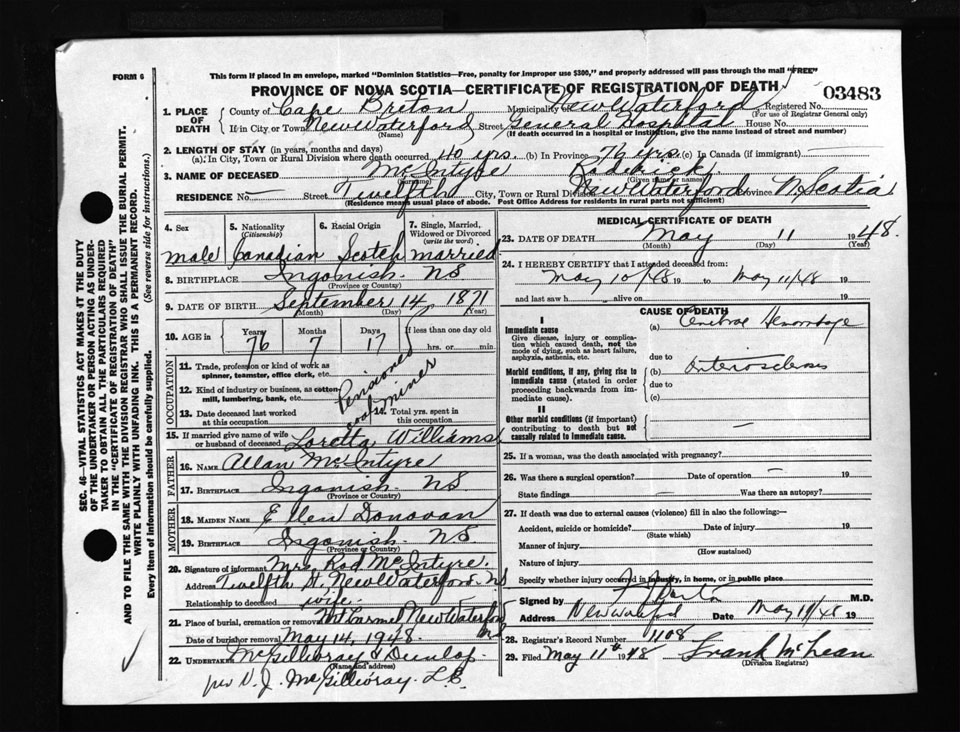 FORM 6
This form if placed in an envelope, marked "Dominion Statistics—Free, penalty for improper use $300," and properly addressed will pass through the mail "FREE"
PROVINCE OF NOVA SCOTIA—CERTIFICATE OF REGISTRATION OF DEATH
03483
1. PLACE OF DEATH
County of Cape Breton Municipality New Waterford Registered No.
(For use of Registrar General only)
If in City or Town New Waterford Street General Hospital House No.
(Name) (If death occurred in a hospital or institution, give the name instead of street and number)
2. LENGTH OF STAY (in years, months and days)
(a) In City, Town or Rural Division where death occurred 40 yrs. (b) In Province 76 yrs. (c) In Canada (if immigrant)
3. NAME OF DECEASED McIntyre Roderick
(Surname) (Given name or names)
RESIDENCE No. — Street Twelfth City, Town or Rural Division New Waterford Province N. Scotia
(Residence means usual place of abode. Post Office Address for residents in rural parts not sufficient)
4. Sex 5. Nationality (Citizenship) 6. Racial Origin 7. Single, Married, Widowed or Divorced (write the word)
male Canadian Scotch married
8. BIRTHPLACE Ingonish NS
(Province or Country)
9. DATE OF BIRTH September 14, 1871
(Month) (Day) (Year)
10. AGE in Years Months Days If less than one day old
76 7 17 hrs. or min.
OCCUPATION
11. Trade, profession or kind of work as spinner, teamster, office clerk, etc.
12. Kind of industry or business, as cotton mill, lumbering, bank, etc.
Pensioned
coal miner
13. Date deceased last worked at this occupation
14. Total yrs. spent in this occupation
15. If married give name of wife or husband of deceased Loretta Williams
FATHER
16. NAME Allan McIntyre
17. BIRTHPLACE Ingonish NS
(Province or Country)
MOTHER
18. MAIDEN NAME Ellen Donovan
19. BIRTHPLACE Ingonish NS.
(Province or Country)
20. Signature of informant Mrs. Rod McIntyre.
Address Twelfth St. New Waterford. NS
Relationship to deceased wife.
21. Place of burial, cremation or removal Mt Carmel New Waterford NS
Date of burial or removal May 14, 1948.
22. UNDERTAKER McGillivray & Dunlop.
(Name and address)
per V. J. McGillivray. L.E.
MEDICAL CERTIFICATE OF DEATH
23. DATE OF DEATH May 11 1948.
(Month) (Day) (Year)
24. I HEREBY CERTIFY that I attended deceased from:
May 10/48 19 to May 11/48 19
and last saw h alive on 19
CAUSE OF DEATH
I
Immediate cause
Give disease, injury or complication which caused death, not the mode of dying, such as heart failure, asphyxia, asthenia, etc.
(a) Cerebral Hemorrhage
due to
Morbid conditions, if any, giving rise to immediate cause (stated in order proceeding backwards from immediate cause).
(b) Arterosclerosis
due to
(c)
II
Other morbid conditions (if important) contributing to death but not causally related to immediate cause.
—
25. If a woman, was the death associated with pregnancy?
26. Was there a surgical operation? — Date of operation — 19
State findings — Was there an autopsy?
27. If death was due to external causes (violence) fill in also the following:—
Accident, suicide or homicide? Date of injury 19
(State which)
Manner of injury
(How sustained)
Nature of injury
Specify whether injury occurred in industry, in home, or in public place
Signed by M.D.
Address New Waterford Date May 11/48 19
28. Registrar's Record Number 1108
29. Filed May 11th 1948 Frank McLean
(Division Registrar)
SEC. 46—VITAL STATISTICS ACT MAKES IT THE DUTY
OF THE UNDERTAKER OR PERSON ACTING AS UNDER-
TAKER TO OBTAIN ALL THE PARTICULARS REQUIRED
IN THE "CERTIFICATE OF REGISTRATION OF DEATH"
AND TO FILE THE SAME WITH THE DIVISION REGISTRAR WHO SHALL ISSUE THE BURIAL PERMIT.
WRITE PLAINLY WITH UNFADING INK. THIS IS A PERMANENT RECORD.
Every item of information should be carefully supplied. (See reverse side for instructions.)